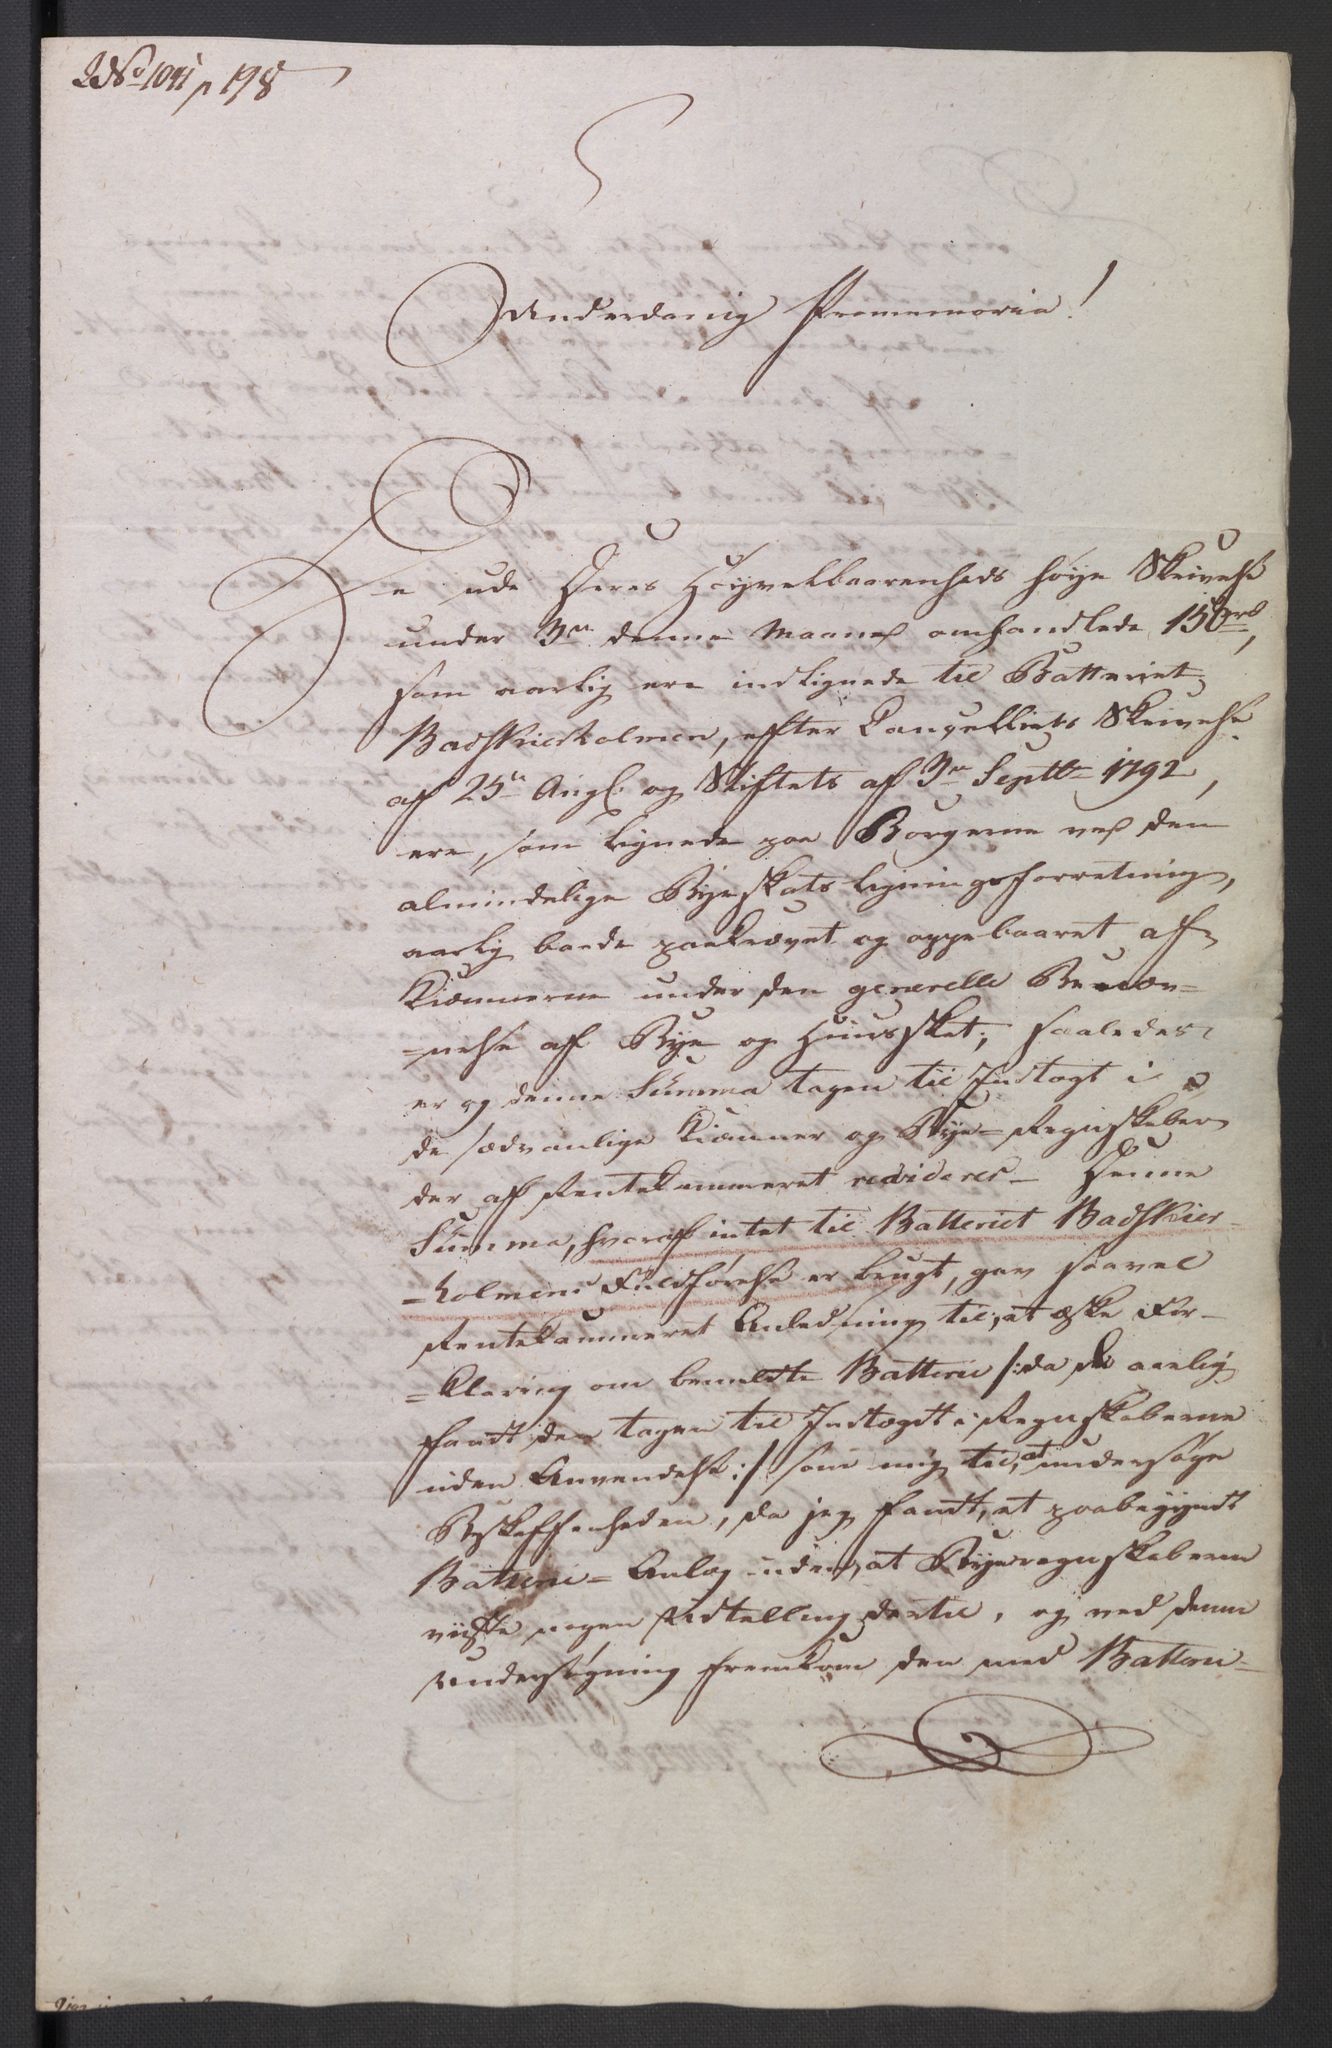 No 1041 p 198
Underdanig Promemoria!
De udi Deres Høyvelbaarenheds høye Skrivelse
under 3de denne Maaned omhandlede 150rd,
som aarlig ere indlignede til Batteriet
Badskierholmen, efter Cancelliets Skrivelse
af 25de Aug. og Stiftets af 3de Septbr 1792,
ere, som lignede paa Borgerne ved den
almindelige Bye skats lignings forretning,
aarlig baade paakrævet og oppebaaret af
Kiæmnerne under den generelle Benæv-
-nelse af Bye og Huusskat; saaledes
er og denne Summa tagen til Indtægt i
de sædvanlige Kiæmner og Bye-Regnskaber
der af Rentekammeret revideres - Denne
Summa, hvoraf intet til Batteriet Badskier-
-holmens Fuldførelse er brugt, gav saavel
Rentekammeret Anledning til, at æske For-
-klaring om bemeldte Batterie /: da det aarlig
fandt den tagen til Indtægt i Regnskaberne
uden Anvendelse :/ som mig til, at undersøge
Beskaffenheden, da jeg fandt, at paabegyndt
Batterie-Anlæg uden, at Byeregnskaberne
viiste nogen Udtelling dertil, og ved denne
Undersøgning fremkom den med Batteri-